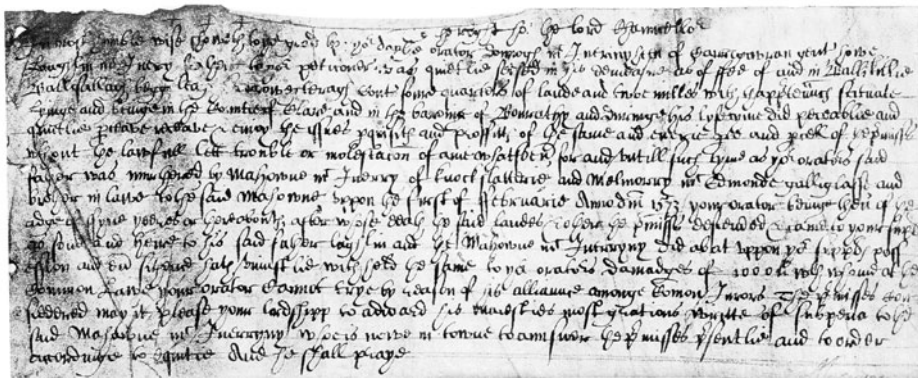 To the right ho: the lord Chauncellor
In most humble wise sheweth to your good lp: yor daylie orator Donogh mc Inerrynyth of gent sone
laughlin mc Inery father to yor petitioner was quietlie seised in his demeasne as of ffee of and in Ballikillie
Ballysallagh begg cont foure quarters of lande and two milles with thapptenncs scituate
lyinge and beinge in the Countie of Clare and in the barony of Bonratty and duringe his lyfetyme did peceablie and
quietlie receave & enioy the issues pquisits and proffitts of the same and everie pte and pcell of the pmisses
without the lawfull lett trouble or molestacon of anie whatsoever for and untill such tyme as yor orators said
father was murthered by Mahowne mc Inerry of knockslatterie and Melmorry mc Edmonde galliglasse and
brother in lawe to the said Mahowne uppon the first of ffebruarie Anno dni 1573 your orator beinge then of the
adge of fyve yeeres or thereaboutes after whose death the said landes & other the pmisses descended & came to your suplt
as sone and heire to his said father laughlin and the Mahowne mc Inerryny did abat uppon yor supplts poss
ession and did & sithence hath uniustlie withheld the same to yor orators damadges of 1000li with whome at the
Common lawe your orator cannot trye by reason of his allience amonge Comon Jurors The pmisses con
sidered may it please your lordshipp to adward his maiesties most gratious writte of subpena to the
said Mahowne mc Inerryny who is nowe in towne to answer the pmisses psentlie and to order
accordinge to equitie And he shall praye